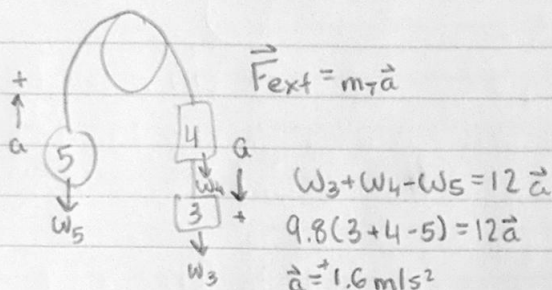 F⃗ext = m_T a⃗
+
a
5
W5
4
W4
a
3
+
W3
W3 + W4 - W5 = 12 a⃗
9.8(3+4-5) = 12a⃗
a⃗ = +1.6 m/s²